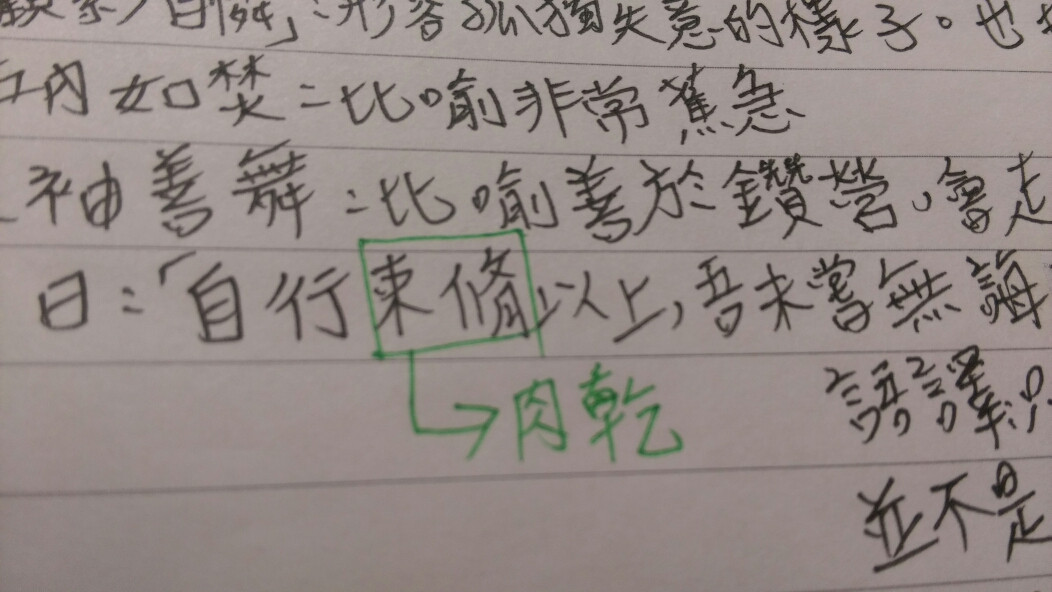 自憐」:形容孤獨失意的樣子。也
內如焚:比喻非常蕉急
袖善舞:比喻善於鑽營、會走
曰:「自行束脩以上,吾未嘗無誨
肉乾
語譯:
並不是